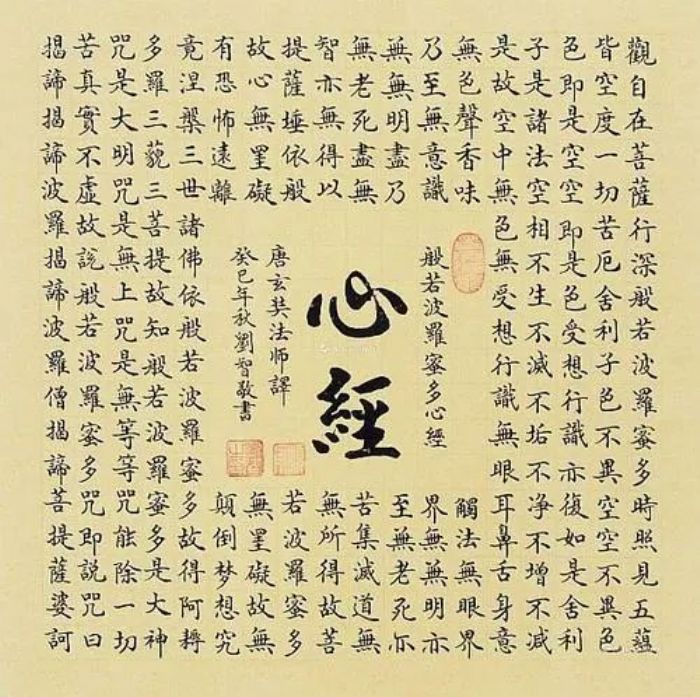 觀自在菩薩行深般若波羅蜜多時照見五蘊
皆空度一切苦厄舍利子色不異空空不異色
色即是空空即是色受想行識亦復如是舍利
子是諸法空相不生不滅不垢不净不增不減
是故空中無色無受想行識無眼耳鼻舌身意
無色聲香味
觸法無眼界
乃至無意識
界無無明亦
無無明盡乃
至無老死亦
無老死盡無
苦集滅道無
智亦無得以
無所得故菩
提薩埵依般
若波羅蜜多
故心無罣礙
無罣礙故無
有恐怖遠離
顛倒梦想究
竟涅槃三世諸佛依般若波羅蜜多故得阿耨
多羅三藐三菩提故知般若波羅蜜多是大神
咒是大明咒是無上咒是無等等咒能除一切
苦真實不虛故説般若波羅蜜多咒即説咒曰
揭諦揭諦波羅揭諦波羅僧揭諦菩提薩婆訶
般若波羅蜜多心經
心經
唐玄奘法師譯
癸巳年秋劉智敬書